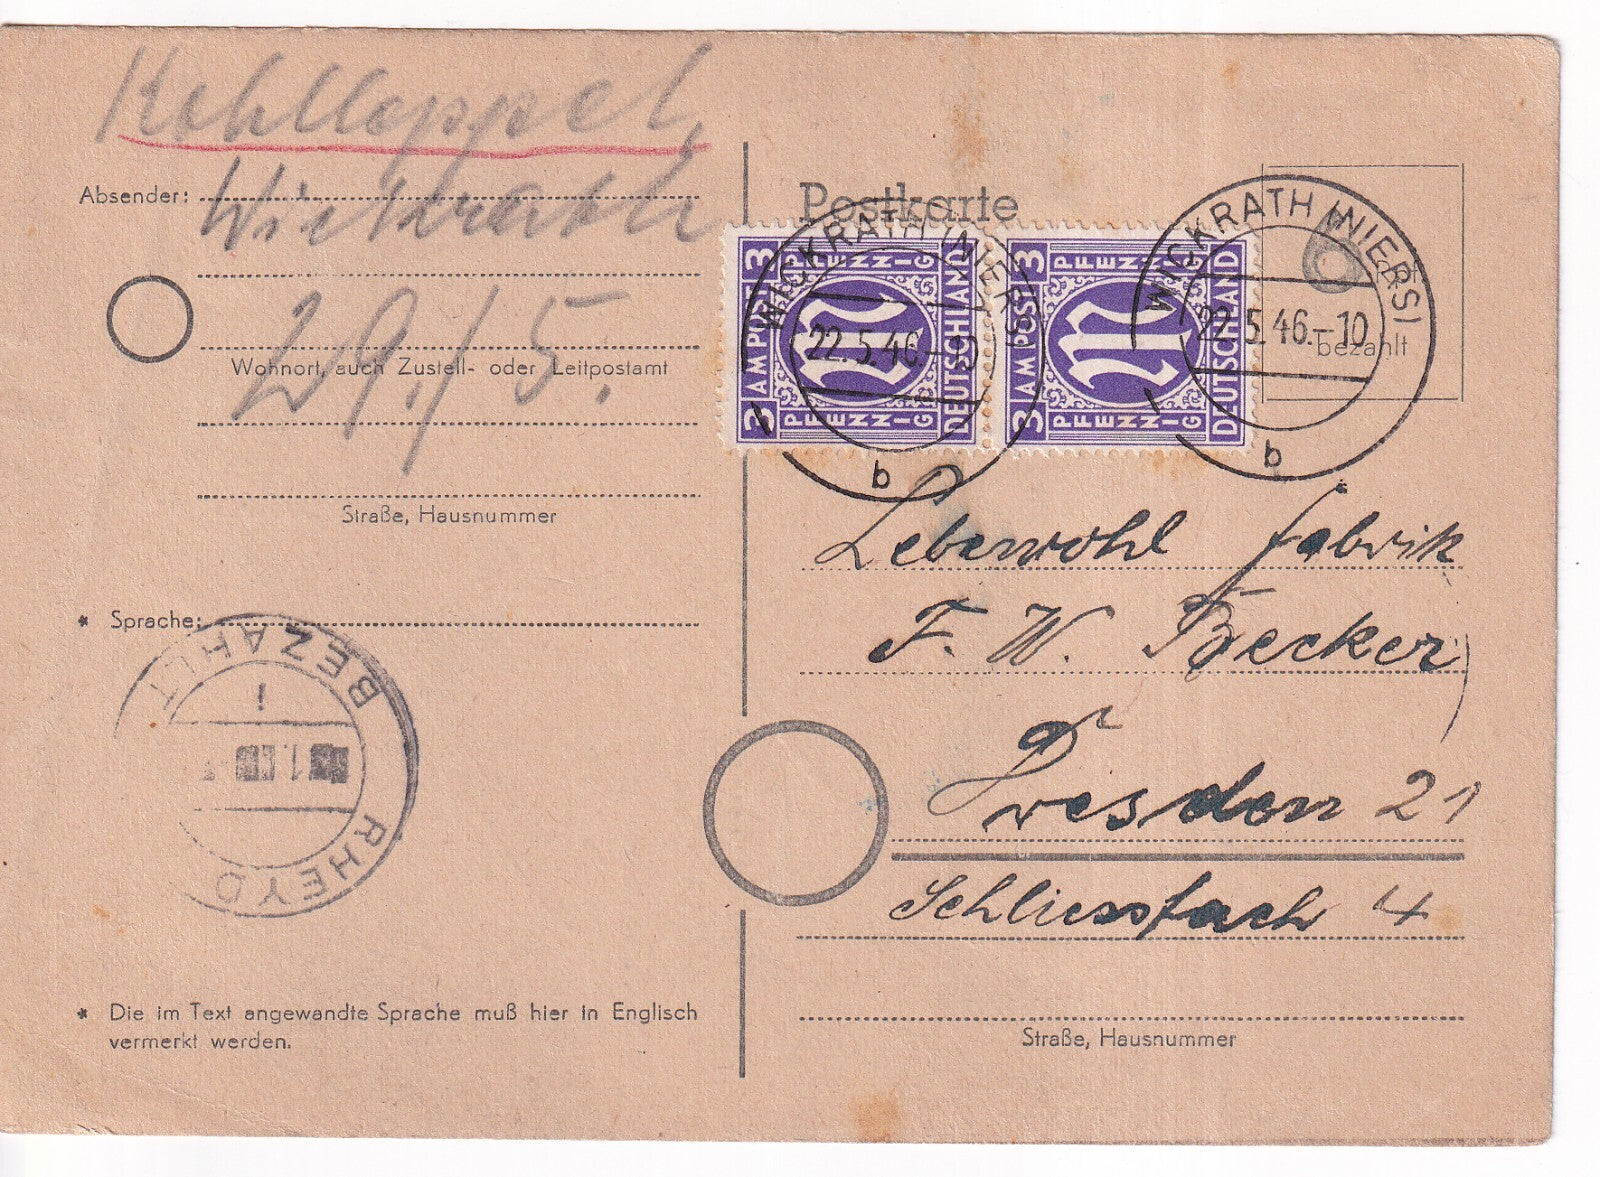 Kohlleppel,
Absender: Wickrath
29./5.
Wohnort, auch Zustell- oder Leitpostamt
Straße, Hausnummer
* Sprache:
BEZAHLT
i
RHEYD
* Die im Text angewandte Sprache muß hier in Englisch
vermerkt werden.
Postkarte
3 AM POST 3
PFENNIG
M
PFENNIG
DEUTSCHLAND
3 AM POST 3
PFENNIG
M
PFENNIG
DEUTSCHLAND
WICKRATH (NIERS)
22.5.46.-10
b
WICKRATH (NIERS)
22.5.46.-10
b
bezahlt
Lebewohl fabrik
F. W. Becker
Dresden 21
Schliessfach 4
Straße, Hausnummer